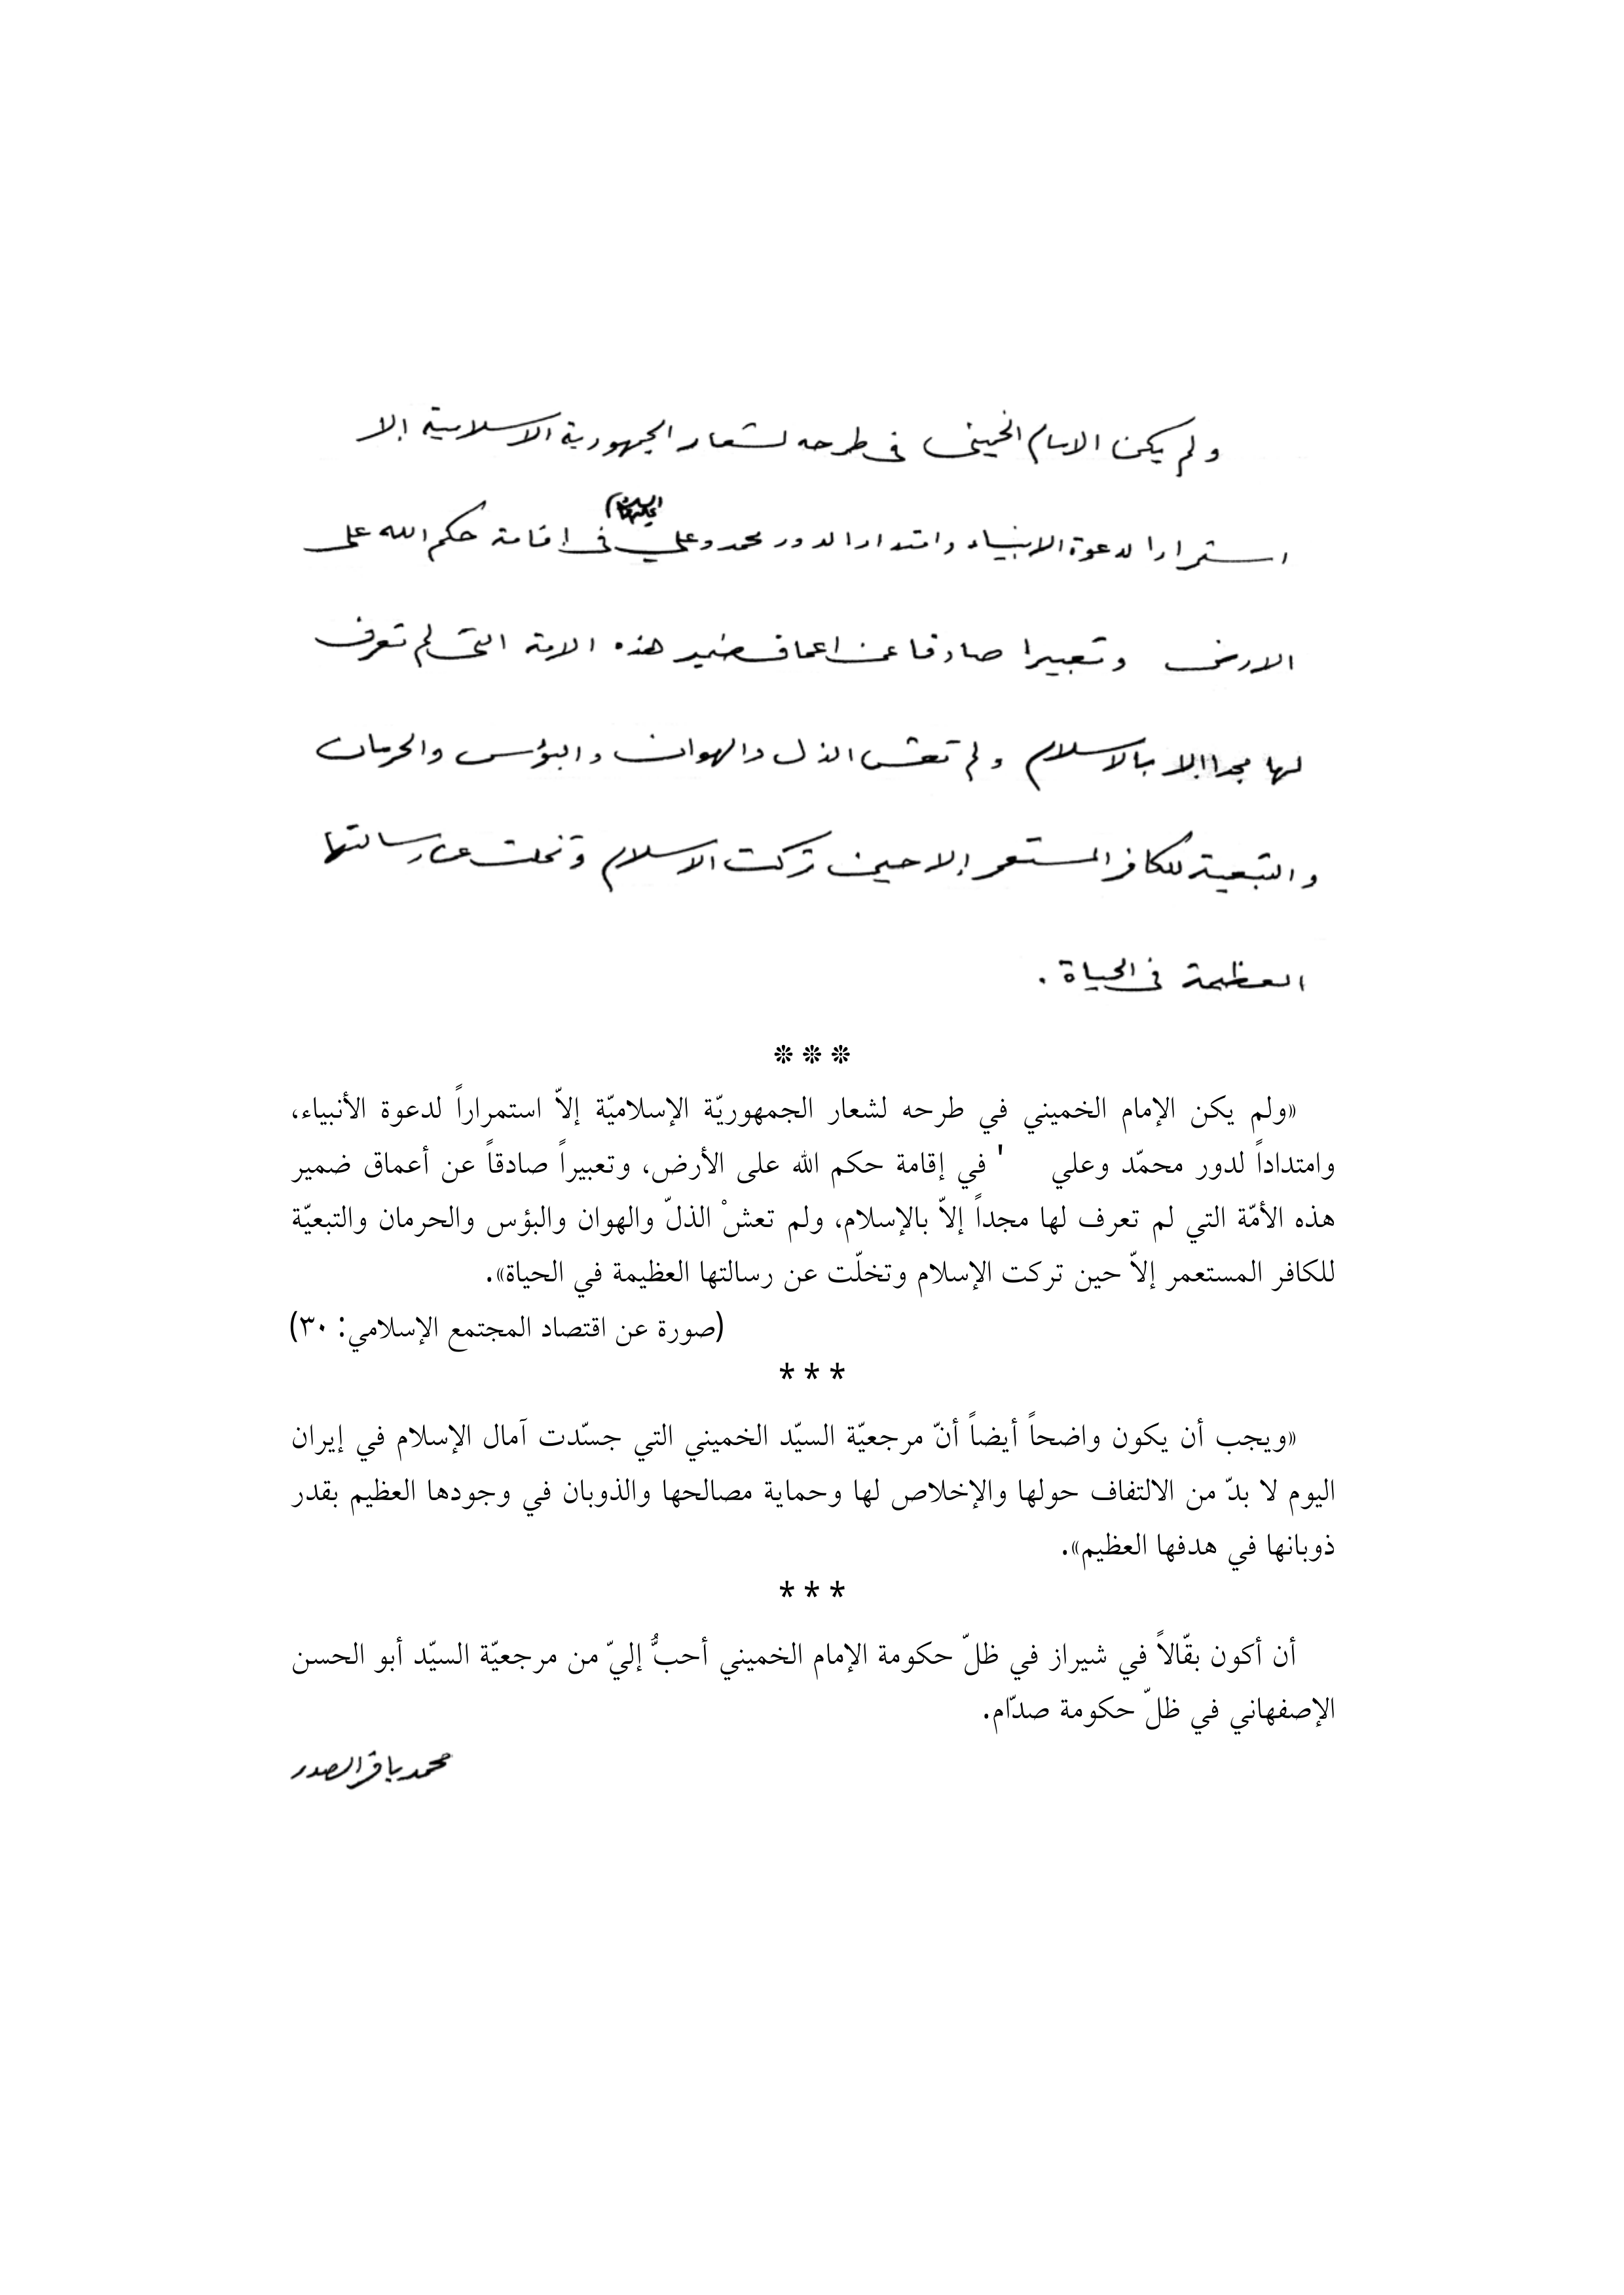 ولم يكن الامام الخميني في طرحه لشعار الجمهورية الاسلامية إلا
استمرارا لدعوة الانبياء وامتدادا لدور محمد وعلي في إقامة حكم الله على
الارض وتعبيرا صادقا عن اعماق ضمير هذه الامة التي لم تعرف
لها مجدا إلا بالاسلام ولم تعش الذل والهوان والبؤس والحرمان
والتبعية للكافر المستعمر إلا حين تركت الاسلام وتخلت عن رسالتها
العظيمة في الحياة .
❊ ❊ ❊
«ولم يكن الإمام الخميني في طرحه لشعار الجمهوريّة الإسلاميّة إلاّ استمراراً لدعوة الأنبياء،
وامتداداً لدور محمّد وعلي ' في إقامة حكم الله على الأرض، وتعبيراً صادقاً عن أعماق ضمير
هذه الأمّة التي لم تعرف لها مجداً إلاّ بالإسلام، ولم تعشْ الذلّ والهوان والبؤس والحرمان والتبعيّة
للكافر المستعمر إلاّ حين تركت الإسلام وتخلّت عن رسالتها العظيمة في الحياة».
(صورة عن اقتصاد المجتمع الإسلامي: ٣٠)
* * *
«ويجب أن يكون واضحاً أيضاً أنّ مرجعيّة السيّد الخميني التي جسّدت آمال الإسلام في إيران
اليوم لا بدّ من الالتفاف حولها والإخلاص لها وحماية مصالحها والذوبان في وجودها العظيم بقدر
ذوبانها في هدفها العظيم».
* * *
أن أكون بقّالاً في شيراز في ظلّ حكومة الإمام الخميني أحبُّ إليّ من مرجعيّة السيّد أبو الحسن
الإصفهاني في ظلّ حكومة صدّام.
محمد باقر الصدر